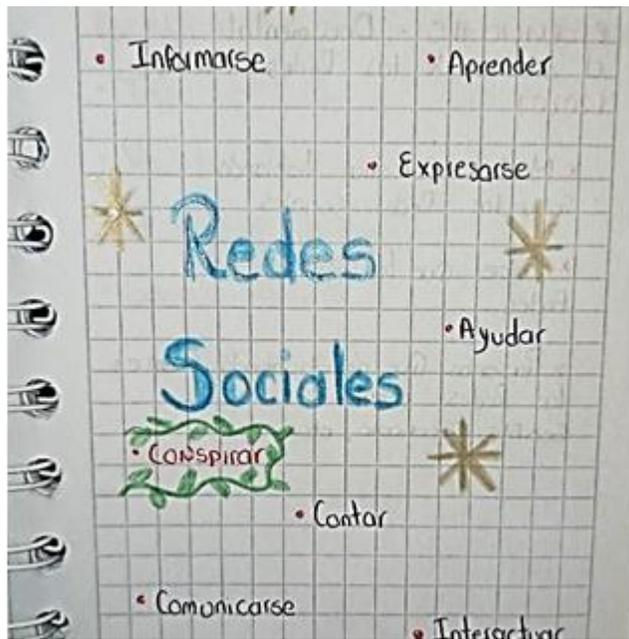 • Informarse
• Aprender
• Expresarse
Redes
• Ayudar
Sociales
• Conspirar
• Contar
• Comunicarse
• Interactuar